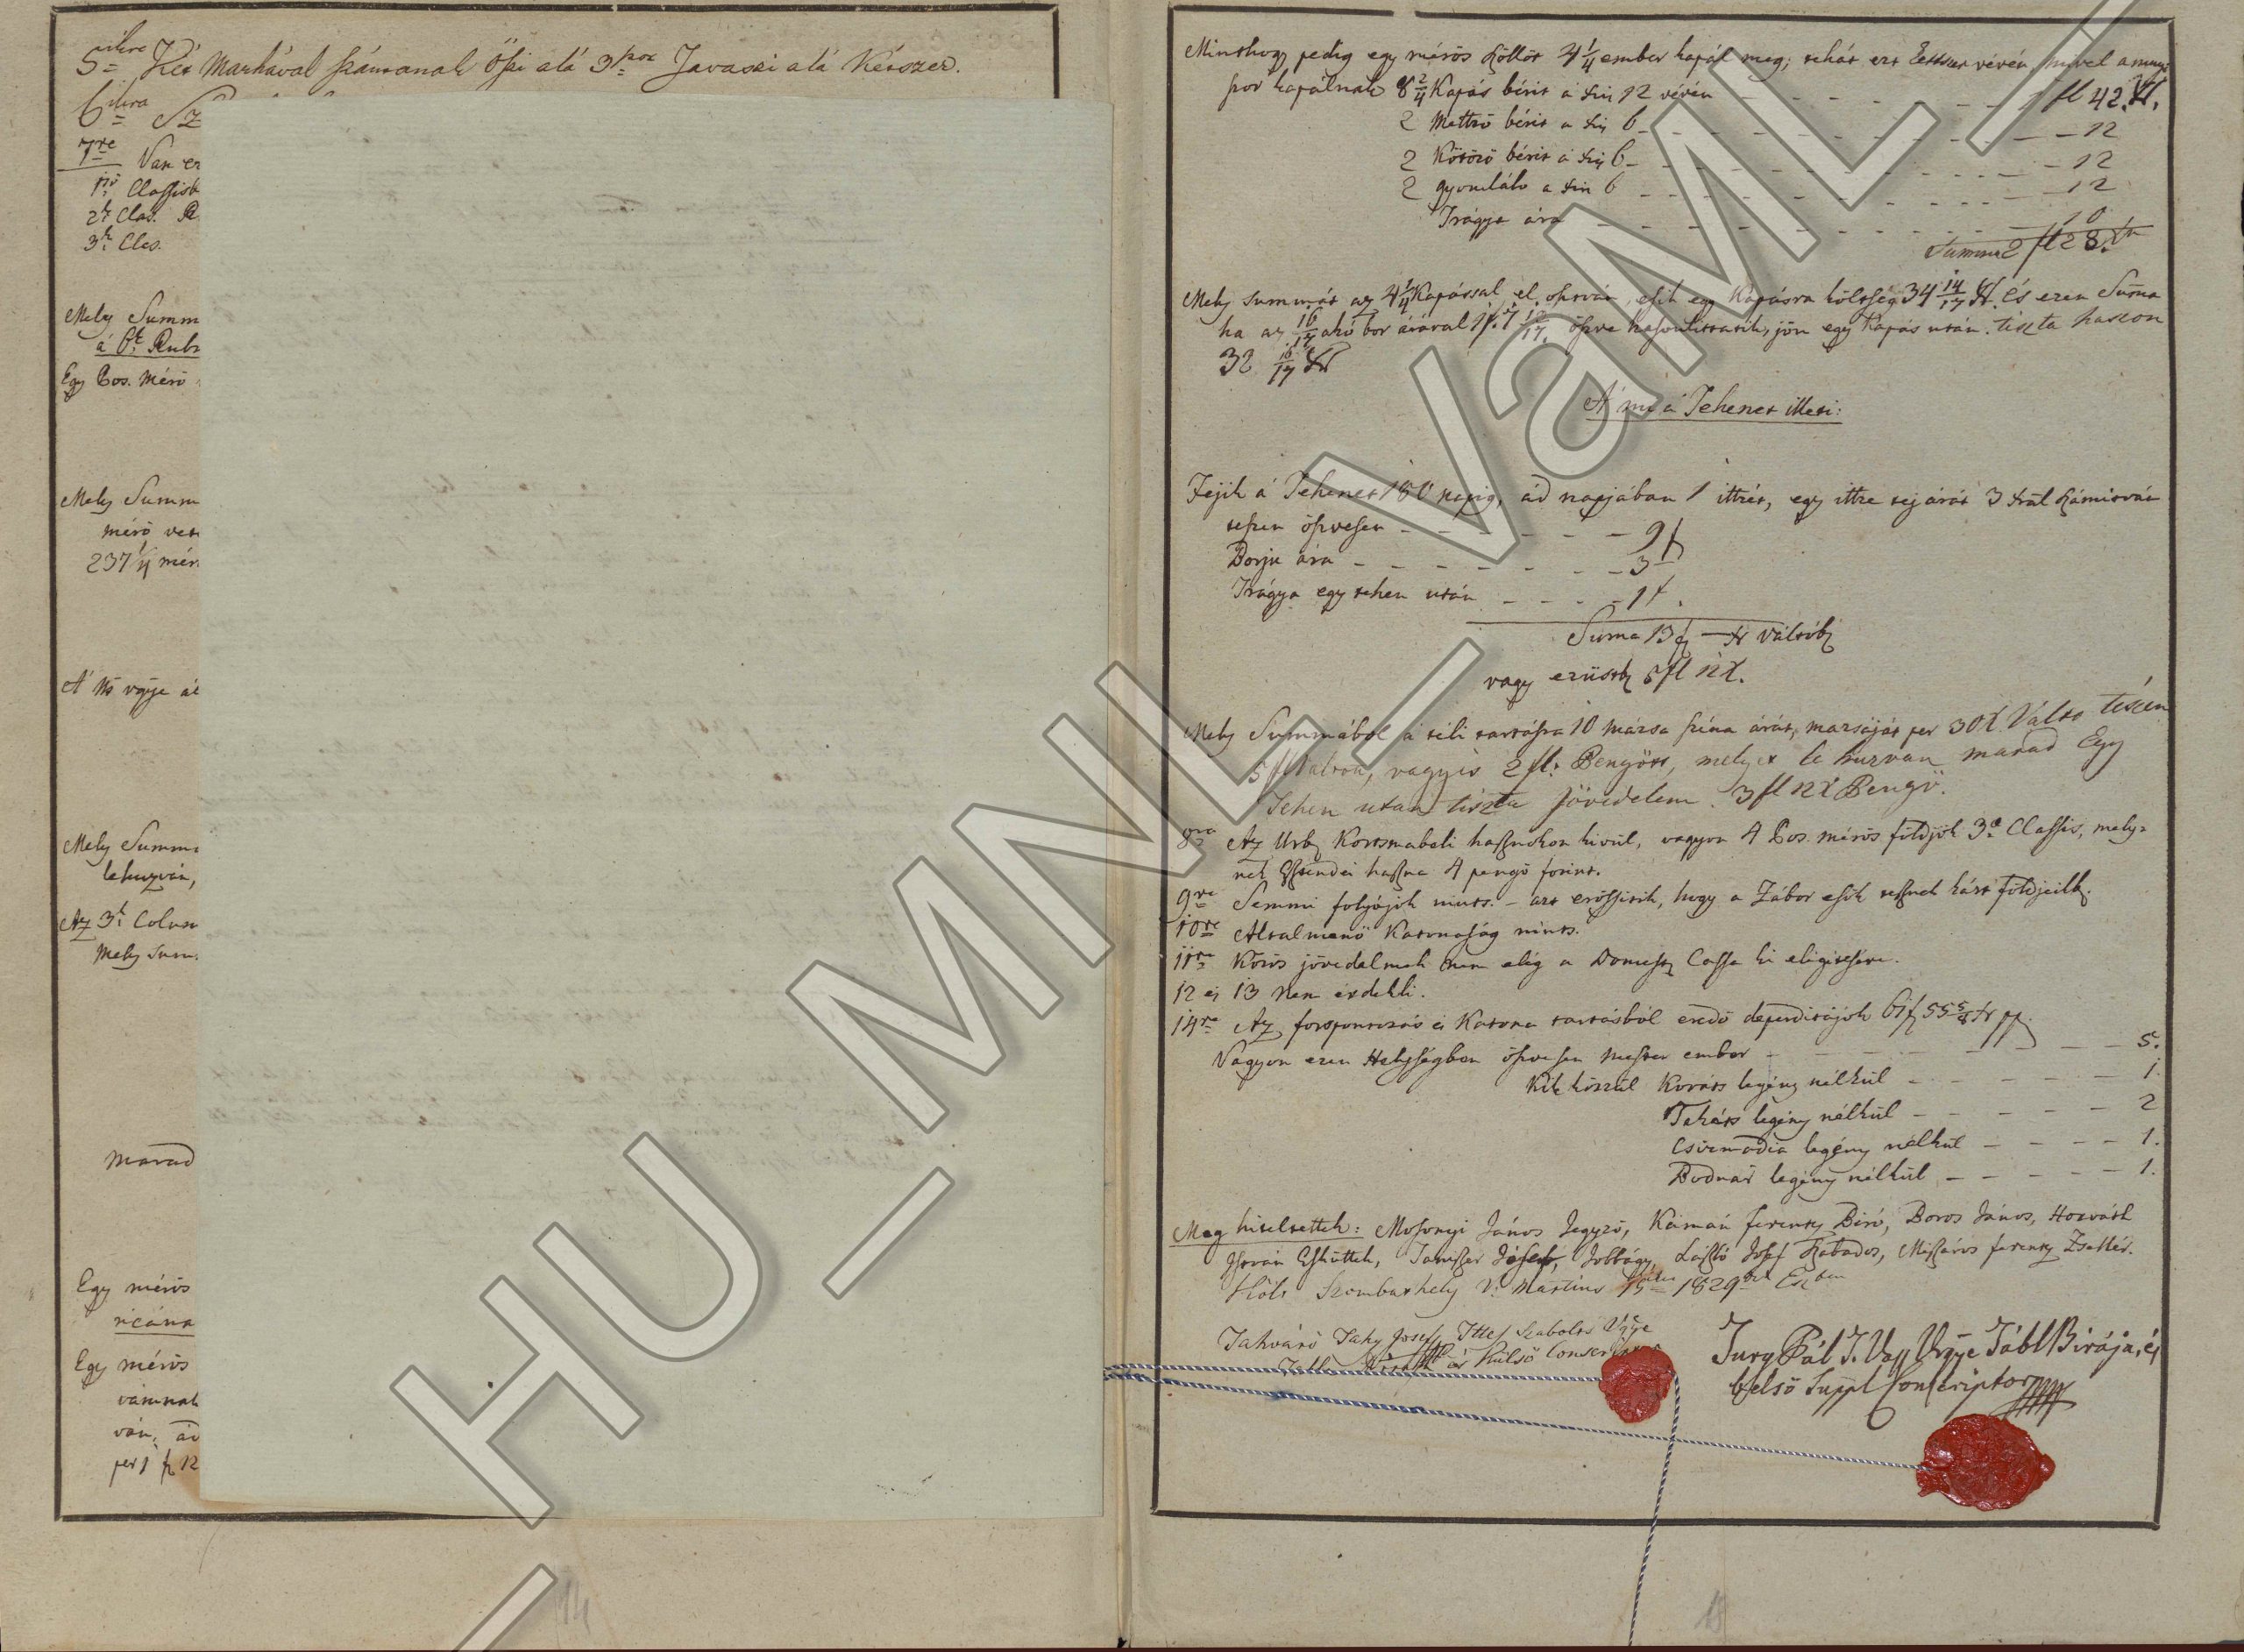 5ikre Két Marhával szántanak Öszi alá 3szor Javaszi alá Kétszer.
6ikra Sz
7re Van er
1ső Classisb
2k Clas. R
3k Clas.
Mely Summ
á 6k Rubr
Egy Pos. Mérő
Mely Summ
mérő vet
237 1/4 mér
A' Ns vgye ál
Mely Summ
lehuzván,
Az 3k Colum
Mely Sum
Marad
Egy mérős
ricána
Egy mérős
vámnak
ván, ad
per 1 f 12
Minthogy pedig egy mérős szőllőt 4 1/4 ember kapál meg; tehát ezt vévén, mivel annyi
szor kapálnak 8 2/4 Kapás bérit a xrj 12 vévén - - - 1 fl 42 Xr.
2 Mettző bérit a xrj 6 - - - 12
2 Kötöző bérit a xrj 6 - - - 12
2 gyomláló a xrj 6 - - - 12
Trágya ára - - - 10
Summa 2 fl 28 xr
Mely summát az 4 1/4 Kapással el osztván, esik egy Kapásra költség 34 14/17 Xr. És ezen Suma
ha az 16/17 akó bor árával 1f. 7 13/17 öszve hasonlittatik, jön egy Kapás után tiszta haszon
32 16/17 Xr
A' mi a' Tehenet illeti:
Fejik a' Tehenet 180 napig, ád napjában 1 ittzét, egy ittze tej árát 3 xral számitván
teszen öszvesen - - - 9 f
Borju ára - - - 3 -
Trágya egy tehen után - - - 1 f.
Suma 13 f — xr váltób
vagy ezüstb 5 fl 12 X.
Mely Summából a téli tartásra 10 mázsa széna árát, mazsáját per 30 X Válto tészen
5 fl Váltoa, vagyis 2 fl. Pengőtt, melyet le huzván marad Egy
Tehen után tiszta jövedelem. 3 fl 12 X Pengő.
8ra Az Urb Kortsmabeli hasznokon kivül, vagyon 4 Pos. mérős földjök 3a Classis, mely-
nek Esztendei haszna 4 pengő forint.
9re Semmi folyójok nints. - azt erőssitik, hogy a Zábor esik tesznek kárt földjeikb.
10re Általmenő Katonaság nints.
11re Közös jövedelmek nem elég a Domest Cassa ki elégitésére.
12 és 13 Nem érdekli.
14re Az forspontozás és Katona tartásból eredő deperditájok 61 f 55 5/8 xr pp.
Vagyon ezen Helységben öszvesen mester ember - - - 5.
Kik közzül Kováts legény nélkül - - - 1
Takáts legény nélkül - - - 2
Csizmadia legény nélkül - - - 1.
Bodnár legény nélkül - - - 1.
Meg hiteltettek: Mosonyi János Jegyző, Kámán ferentz Biró, Boros János, Horváth
István Esküttek, Josef Jobbágy László Josef Szabados, Mészáros ferentz Zsellér.
Költ Szombathely V. Martius 15én 1829dik Esz ben
Josef Ttes Szabolts Vgye
és Külső Conscriptor
Jury Pál T. Vass Vgye TáblBirája, és
belső Suppl Conscriptor
HU_MNL_VaML_I